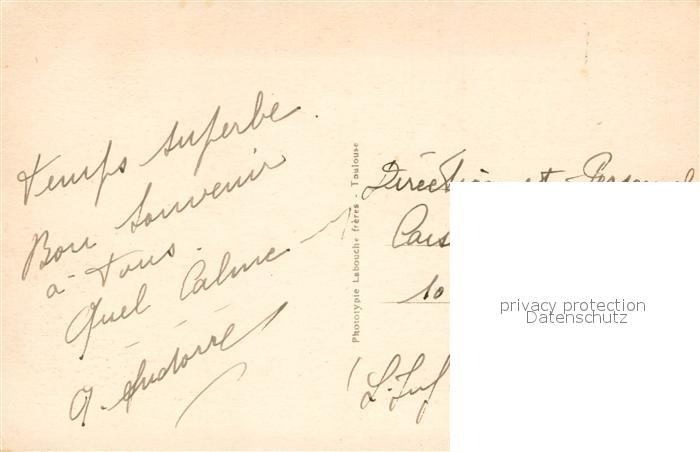 temps superbe.
Bon souvenir
à tous.
Quel Calme
Phototypie Labouche frères - Toulouse
Direction et Personnel
10
privacy protection
Datenschutz